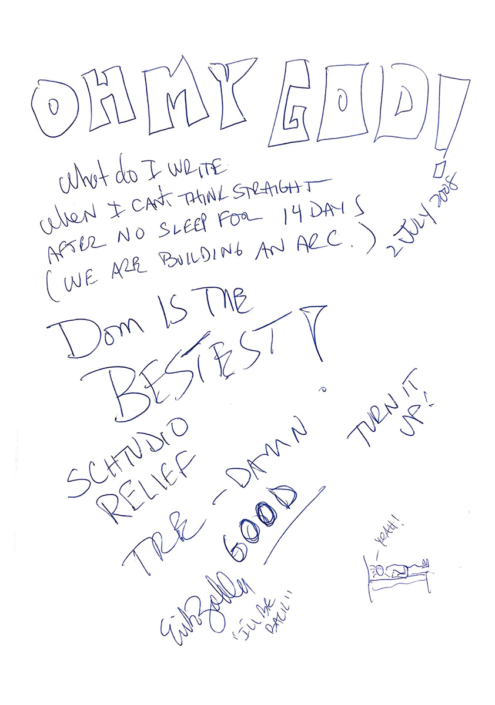 OH MY GOD!
What do I WRITE
WHEN I CAN'T THINK STRAIGHT
AFTER NO SLEEP FOR 14 DAYS
(WE ARE BUILDING AN ARC.)
2 JULY 2008
DOM IS THE
BESTEST!
SCHTUDIO
RELIEF
TRE-DAMN
GOOD
TURN IT
UP!
YEAH!
"I'LL BE
BACK"